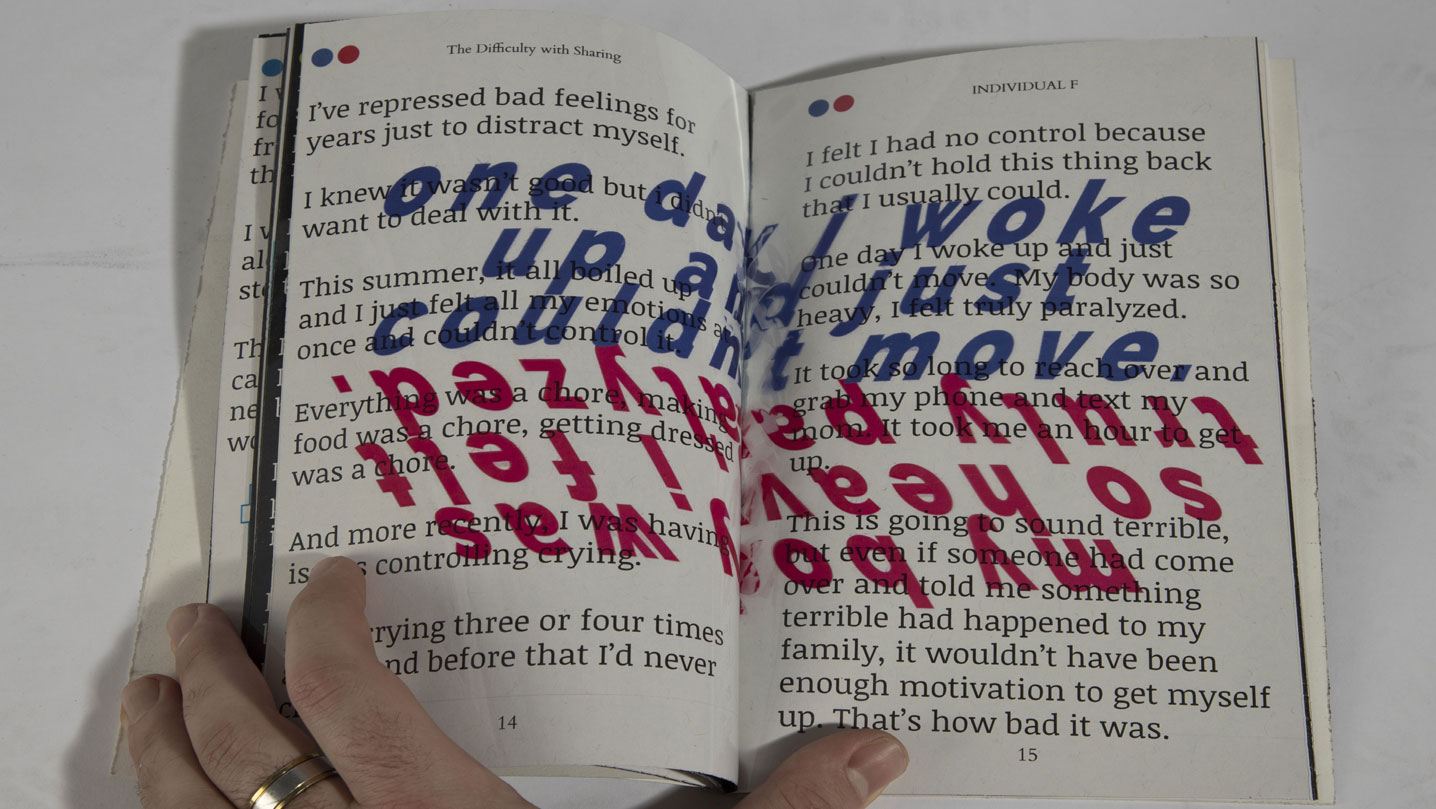 The Difficulty with Sharing
I've repressed bad feelings for
years just to distract myself.
I knew it wasn't good but i didn't
want to deal with it.
This summer, it all boiled up
and I just felt all my emotions at
once and couldn't control it.
Everything was a chore, making
food was a chore, getting dressed
was a chore.
And more recently, I was having
controlling crying.
three or four times
before that I'd never
14
INDIVIDUAL F
I felt I had no control because
I couldn't hold this thing back
that I usually could.
one day I woke up and just
couldn't move. My body was so
heavy, I felt truly paralyzed.
It took so long to reach over and
grab my phone and text my
mom. It took me an hour to get
up.
This is going to sound terrible,
but even if someone had come
over and told me something
terrible had happened to my
family, it wouldn't have been
enough motivation to get myself
up. That's how bad it was.
15
one day I woke
up and just
couldn't move.
my body was
so heavy i felt
truly paralyzed.